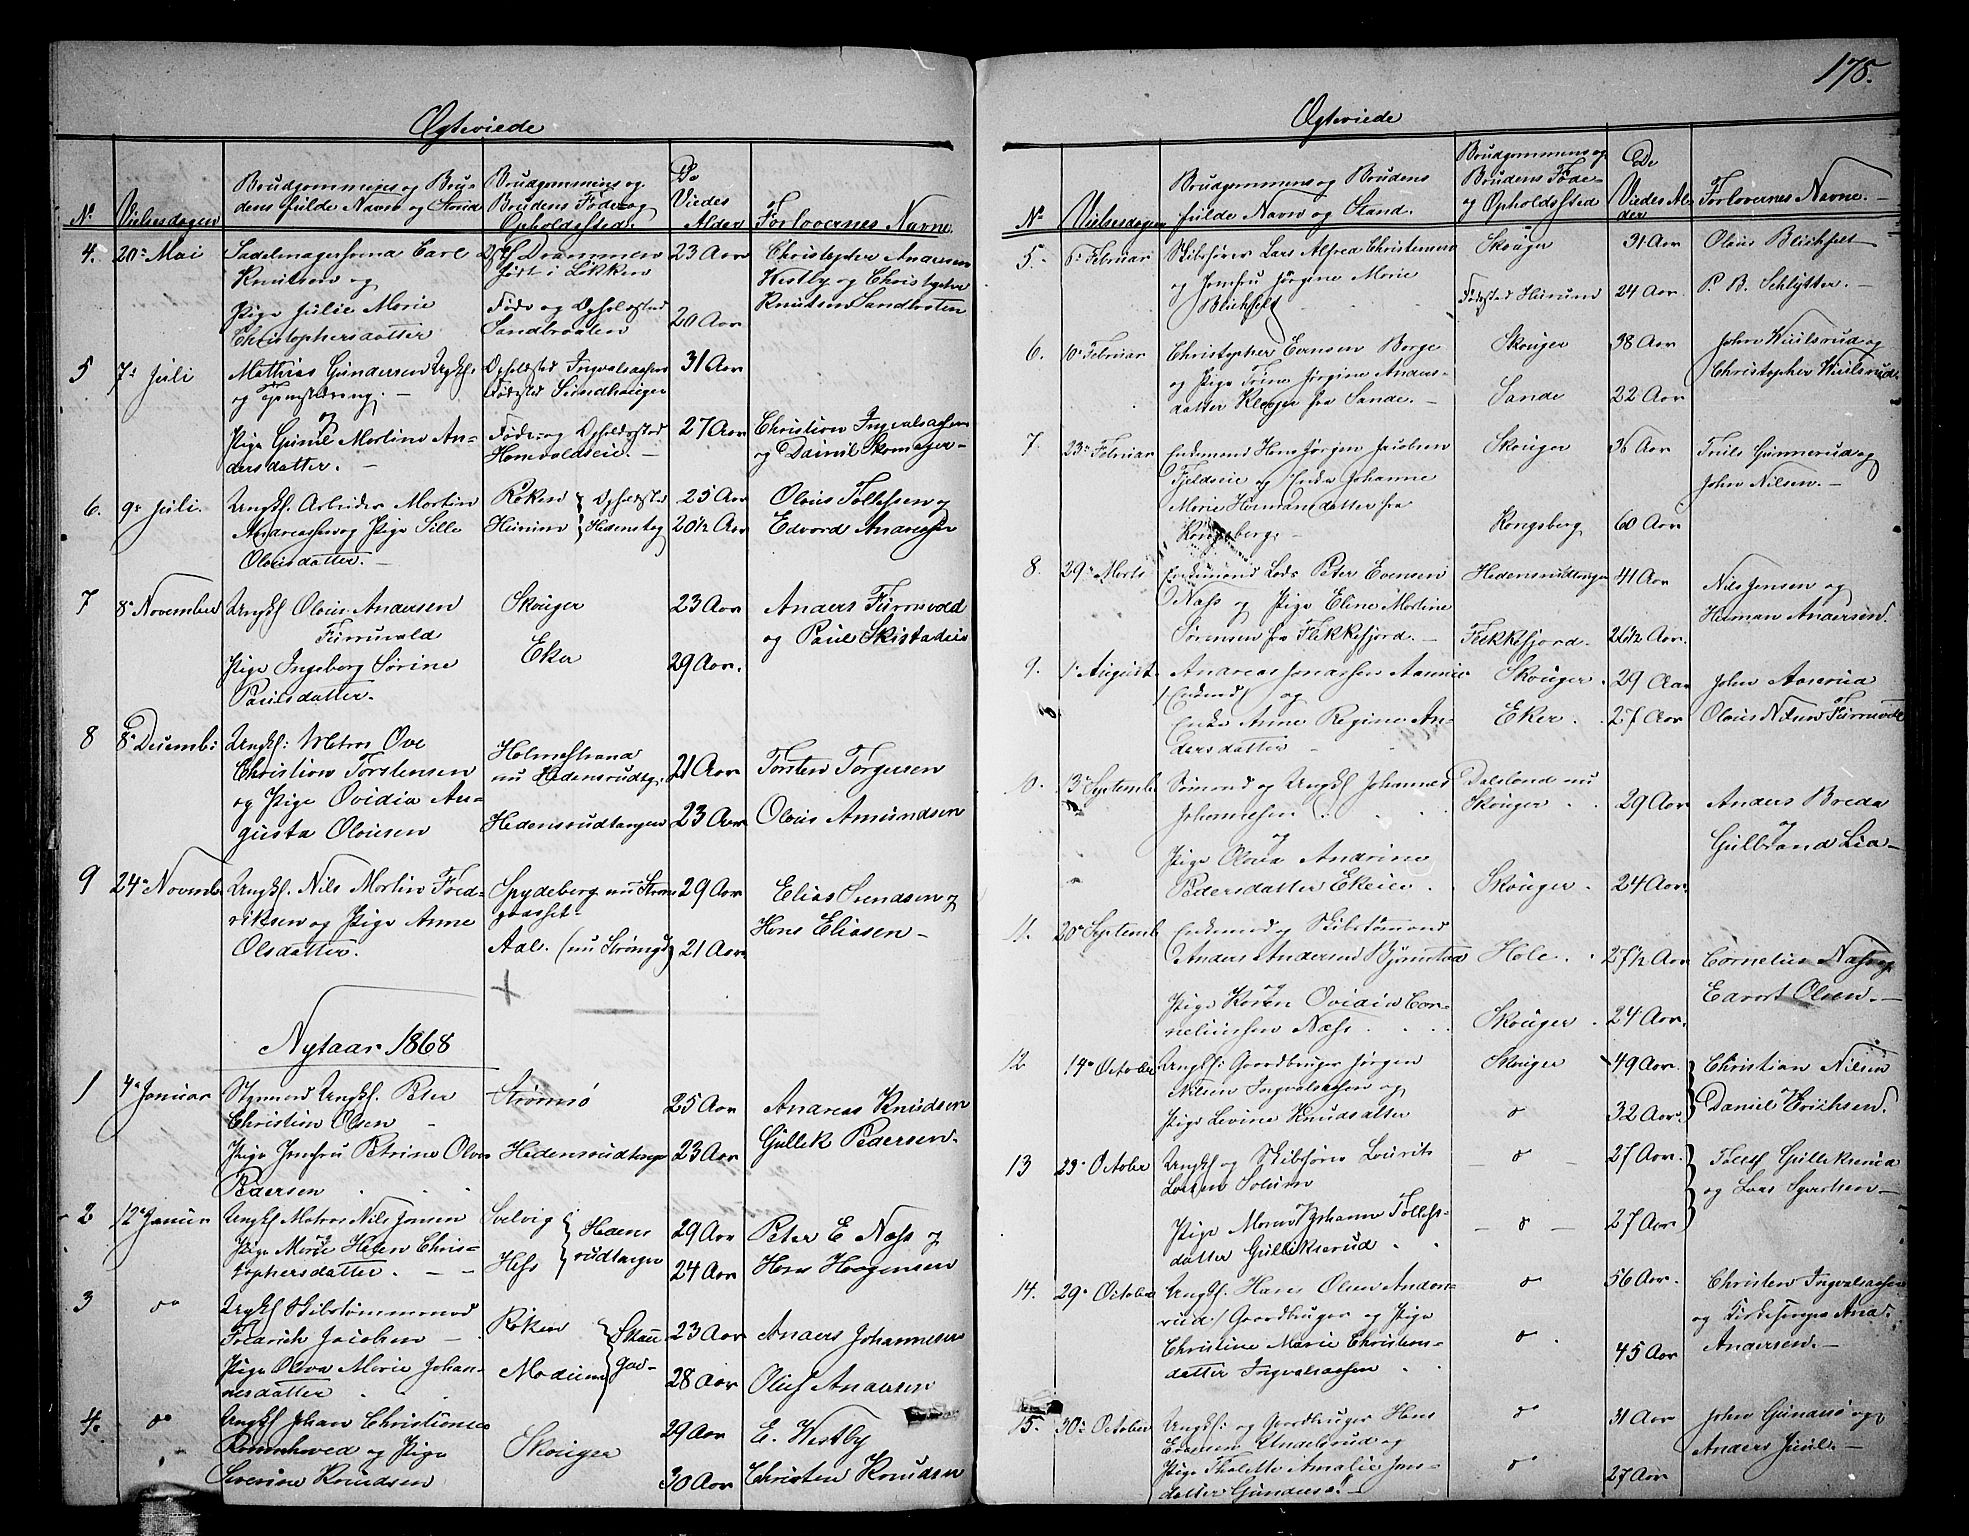 178.
Ægteviede
No
Vielsesdagen
Brudgommens og Bru-
dens fulde Navn og Stand
Brudgommens og
Brudens Føde og
Opholdssted.
De
Viedes
Alder
Forlovernes Navne.
4. 20de Mai
Sadelmagersvend Carl
Knutsen og
Pige Julie Marie
Christophersdatter
Drammen
Føde og Opholdssted
Sandbraaten
23 Aar
20 Aar
Christopher Andersen
Westby og Christopher
Knutsen Sandbraten
5 7de Juli
Mathias Gundersen Ungk.
og
Pige Gunil Martine An-
dersdatter. —
Opholdsted Ingvalsaasen
Fødested
Føde- og Opholdssted
31 Aar
27 Aar
Christian Ingvalsaasen
og Daniel Skomager-
6. 9de Juli.
Ungk. Arbeider Martin
Andreassen og Pige Sille
Olausdatter. —
Røken
Hurum
Opholdssted
25 Aar
20½ Aar
Olaus Tollefsen og
Edvard Andersen
7 8de November
Ungk Olaus Andersen
Furruvald
Pige Ingeborg Sørine
Paulsdatter.
Skouger
Eker
23 Aar
29 Aar.
Anders Furruvald
og Paul Skistadeie
8 8de Decemb:
Ungk: Matros Ove
Christian Torstensen
og Pige Ovidia Au-
gusta Olausen
Holmestrand
nu Hedensrudtg.
Hedensrudtangen
21 Aar
23 Aar
Torsten Torgersen
Olaus Amundsen
9 24de Novemb
Ungk. Nils Martin Fred-
riksen og Pige Anne
Olsdatter.
Spydeberg nu Strøms-
gaasset-
Aal. (nu Strømsgd)
29 Aar
21 Aar
Elias Svendsen og
Hans Eliasen —
Nytaar 1868
1 4de Januar
Ungk. Peter
Christian Olsen
Pige Jomfru Petrine Olava
Pedersen
Strømsø
Hedensrudtangen
25 Aar
23 Aar
Andreas Knudsen
Gullik Pedersen.
2 12de Januar
Ungk Matros Nils Jensen
og
Pige Marie Helen Chris-
tophersdatter. — —
Svelvig
Hess
Hedens
rudtangen
29 Aar
24 Aar
Peter E Næss og
Hans Haagensen
3 do
Ungk Skibstømmermand
Fredrich Jacobsen —
Pige Olava Marie Johan-
nesdatter
Røken
Modum
23 Aar
28 Aar
Anders Johannesen
Oluf Andersen
4. do
Ungk Johan Christiansen
og Pige
Severine Knudsen
Skouger
29 Aar
30 Aar
E. Westby
Christen Knudsen
Ægteviede
No
Vielsesdagen
Brudgommens og Brudens
fulde Navn og Stand.
Brudgommens og
Brudens Føde-
og Opholdssted
De
Viedes Al-
der
Forlovernes Navne. —
5. 6te Februar
Skibsfører Lars Alfred Christensen
og Jomfru Jørgine Marie
Blichfeldt
Skouger
Fødested Hurum
31 Aar
24 Aar.
Olaus Blichfelt
P. B. Schlytter. —
6. Februar
Christopher Evensen Berge
og Pige Trine Jørgine Anders-
datter Klever fra Sande. —
Skouger
Sande
38 Aar
22 Aar
John Wiulsrud og
Christopher Wiulsrud.
7. 23de Februar
Enkemand Hans Jørgen Jacobsen
Fjeldseie og Enke Johanne
Marie Hermansdatter fra
Kongsberg. —
Skouger
Kongsberg
36 Aar
60 Aar
Truls Gunnerud og
John Nilsen. —
8. 29de Marts
Enkemand Lods Peter Evensen
Næss og Pige Eline Martine
Sørensen fra Flekkefjord. —
Hedensrudtangen
Flekkefjord.
41 Aar
Aar.
Nils Jensen og
Herman Andersen.
9. 1de August.
Andreas Jonassen
(Enkemd) og
Enke Anne Regine An-
dersdatter
Skouger.
Eker.
29 Aar
27 Aar
John Aaserud
og
Olaus Nilsen Furruvald
10. 13de Septemb
Sømand og Ungk Johannes
Johannesen
og
Pige Olava Andrine
Pedersdatter Ekeie
Dalsland nu
Skouger
Skouger.
29 Aar
24 Aar.
Anders Breda
og
Gulbrand Lia —
11. 20de Septemb
Enkemand og Skibstømmd
Anders Andersen
og
Pige Karen Ovidia Cor-
neliussen Næss.
Hole.
Skouger.
27½ Aar
24 Aar.
Cornelius Næss og
Edvart Olsen. —
12 14de October
Ungk: Gaardbruger Jørgen
Nilsen Ingvalsaasen og
Pige Levine Knudsdatter
Skouger
do
49 Aar.
32 Aar.
Christian Nilsen
og
Daniel Erichsen.
13 23de October
Ungk og Skibsfører Lauritz
Larsen Solum
og
Pige Maren Johanne Tollefs-
datter Gullikserud
— do —
— do —
27 Aar.
27 Aar.
Tollef Gullikserud
og Lars Syvertsen —
14. 29de October
Ungk. Hans Olsen Anders-
rud. Gaardbruger og Pige
Christine Marie Christians-
datter Ingvalsaasen
do
do
56 Aar.
45 Aar
Christen Ingvalsaasen
og Kirkesanger And.
Andersen. —
15. 30de October
Ungk: og Gaardbruger Hans
Evensen Undelsrud og
Pige Thalette Amalie Jens-
datter Gundersø. —
do
do
31 Aar
27 Aar
John Gundersø og
Anders Juul. —